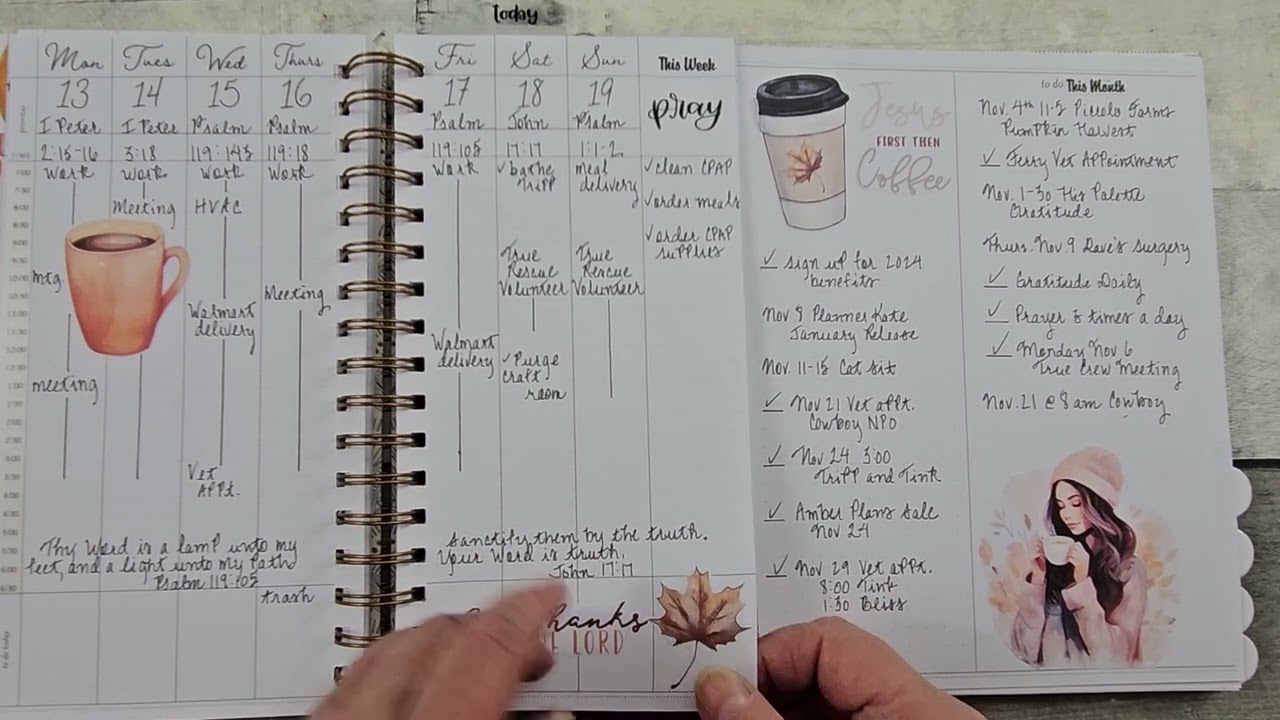 today
Mon Tues Wed Thurs
13 14 15 16
I Peter I Peter Psalm Psalm
2:15-16 3:18 119:145 119:18
Work Work Work Work
Meeting HVAC
mtg.
Meeting
Walmart
delivery
meeting
Vet
APPt.
Thy Word is a lamp unto my
feet, and a light unto my path
Psalm 119:105
trash
Fri Sat Sun This Week
17 18 19 pray
Psalm John Psalm
119:105 17:17 1:1-2
Work ✓bathe meal ✓clean CPAP
Tripp delivery
✓order meals
✓order CPAP
supplies
True True
Rescue Rescue
Volunteer Volunteer
Walmart
delivery
✓Purge
craft
room
Sanctify them by the truth.
Your Word is truth.
John 17:17
hanks
LORD
Jesus
FIRST THEN
Coffee
✓ sign up for 2024
benefits
Nov 8 Planner Kate
January Release
Nov. 11-15 Cat sit
✓ Nov 21 Vet appt.
Cowboy NPO
✓ Nov 24 3:00
Tripp and Tink
✓ Amber Plans Sale
Nov 24
✓ Nov 29 Vet appt.
8:00 Tink
1:30 Bliss
to do This Month
Nov 4th 11-5 Piccolo Farms
Pumpkin Harvest
✓ Jerry Vet Appointment
Nov. 1-30 His Palette
Gratitude
Thurs. Nov 9 Dave's surgery
✓ Gratitude Daily
✓ Prayer 3 times a day
✓ Monday Nov 6
True Crew Meeting
Nov. 21 @ 8 am Cowboy